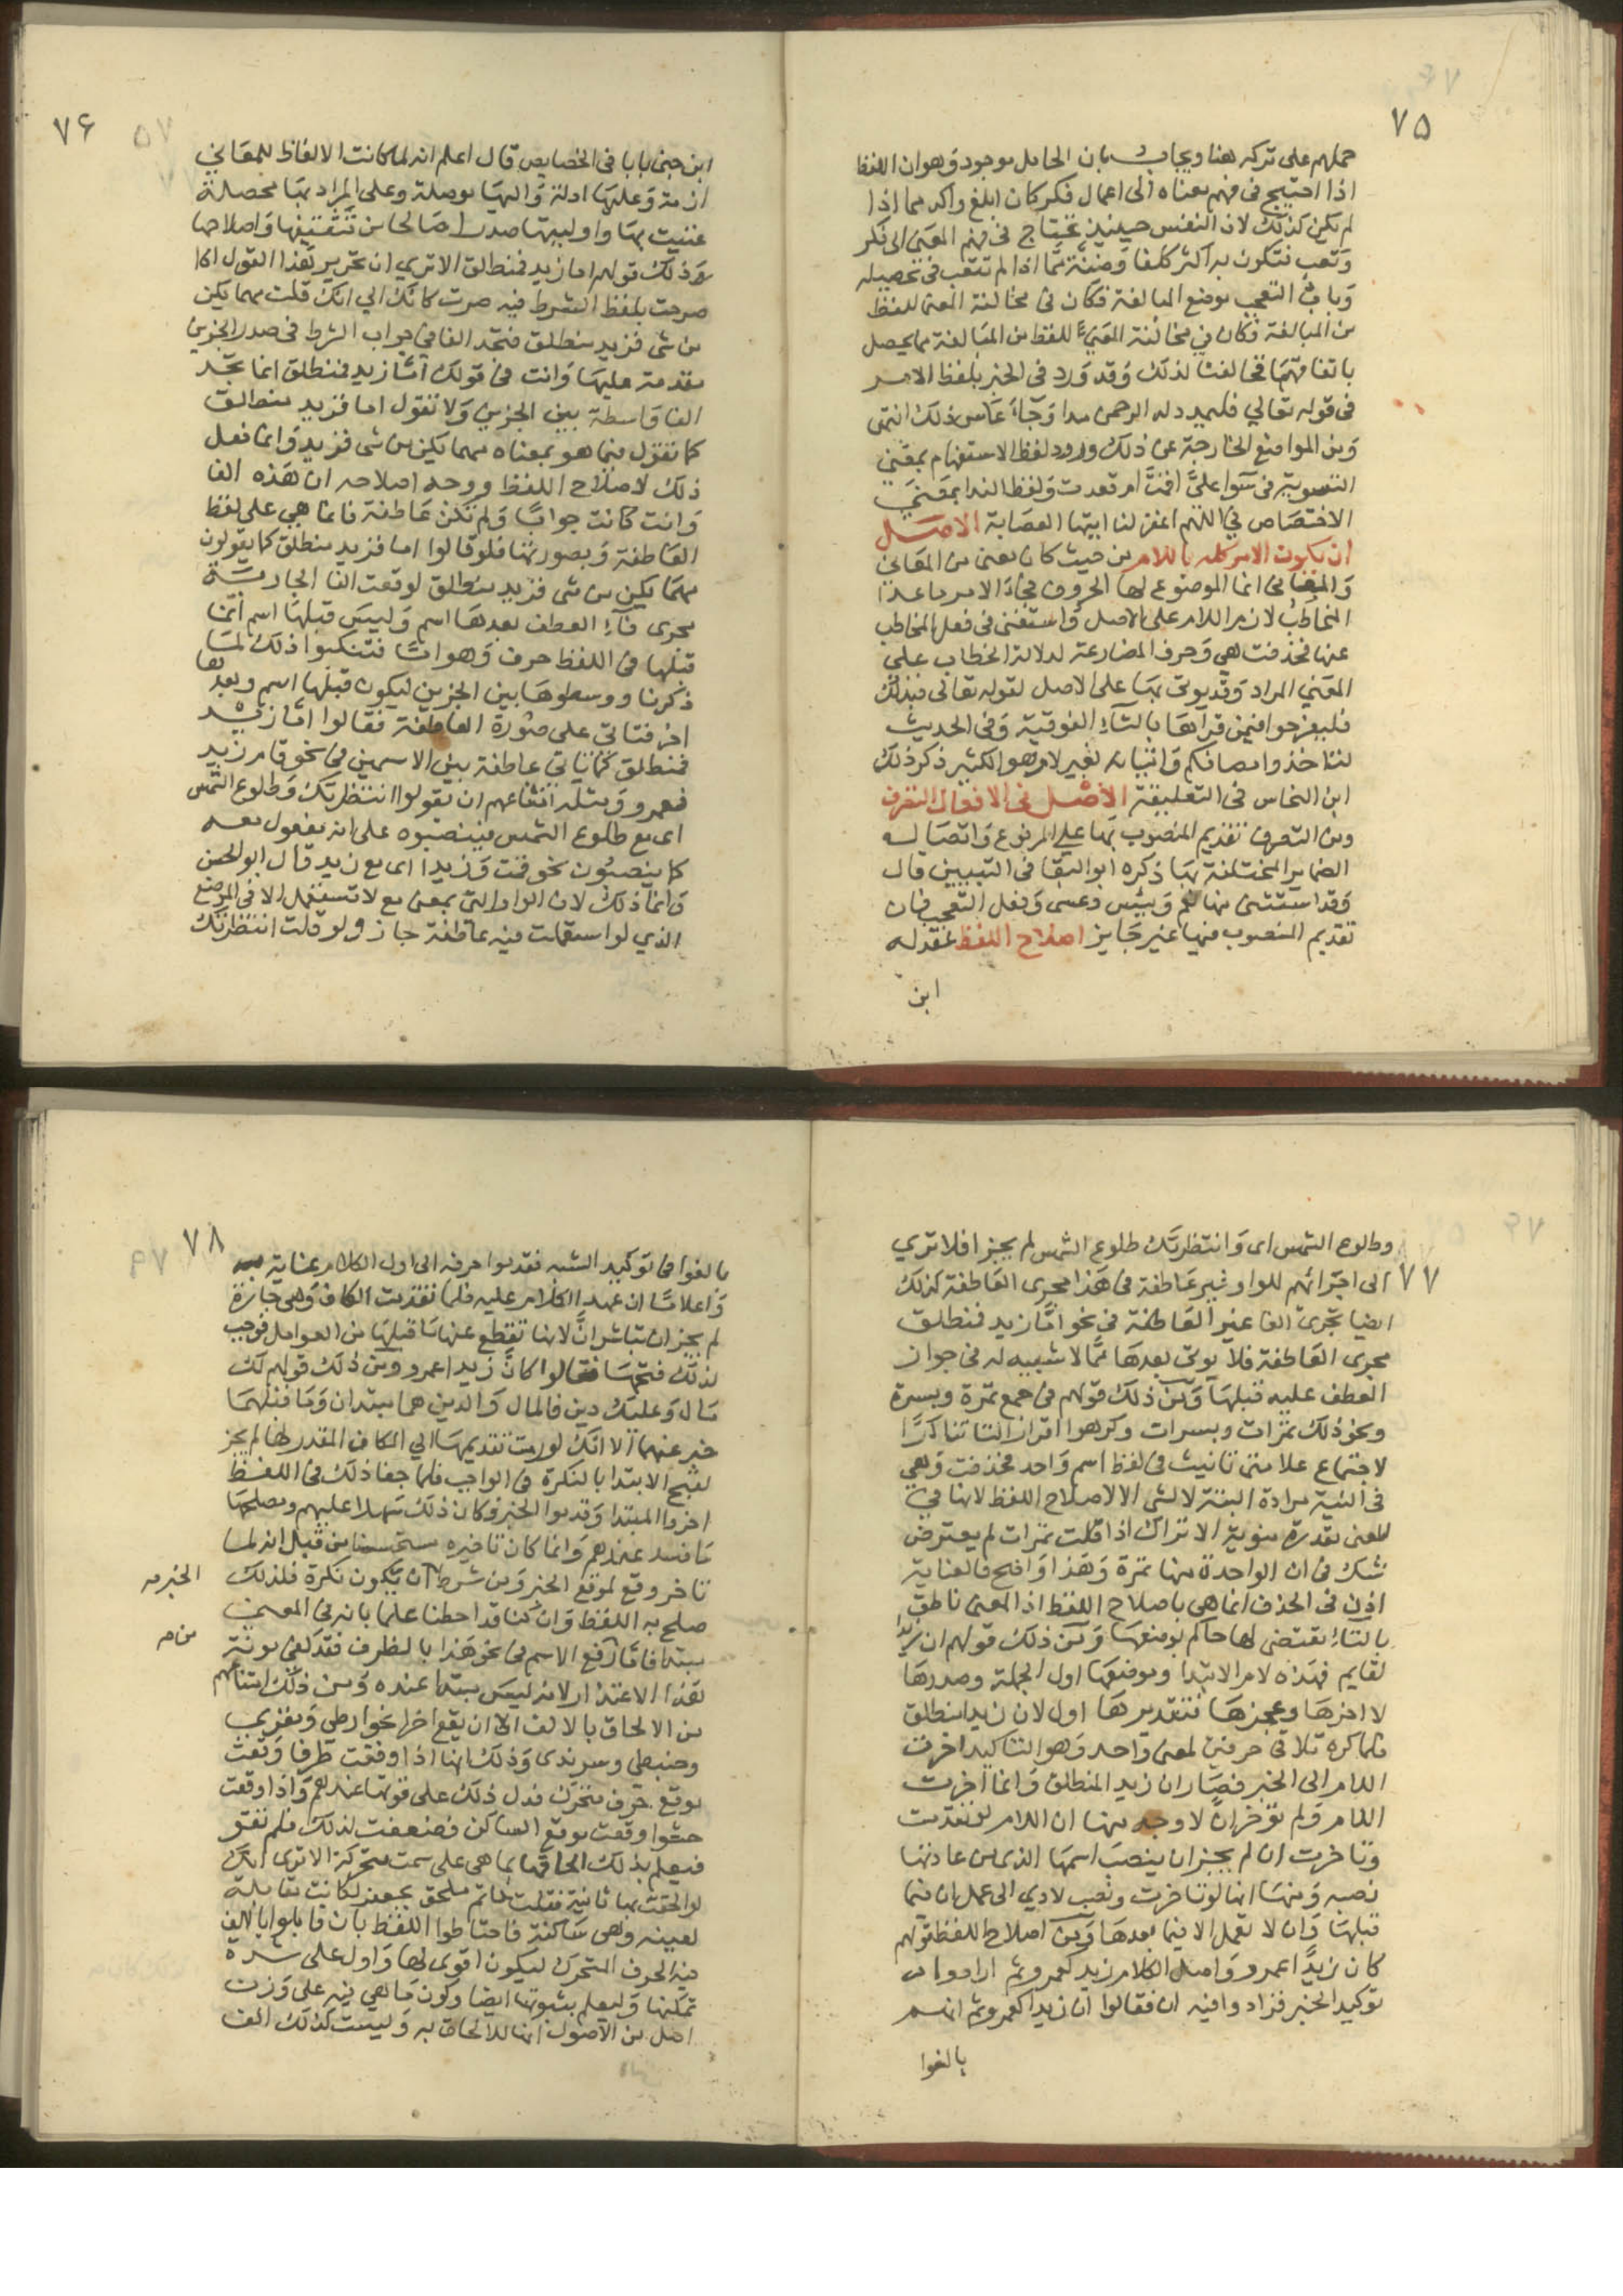 ٧٥
حملهم على تركه هنا ويجاب بان الحامل موجود وهو ان اللفظ
اذا احتيج فى فهم معناه الى اعمال فكر كان ابلغ واكد مما اذا
لم يكن كذلك لان النفس حينيذ تحتاج فى فهم المعنى الى فكر
وتعب فتكون به اكثر كلفا وضنة مما اذا لم تتعب فى تحصيله
وباب التعجب موضع المبالغة فكان فى مخالفة المعنى للفظ
من المبالغة فكان في مخالفة المعنى للفظ من المبالغة ما يحصل
باتفاقهما فخالفنا لذلك وقد ورد فى الخبر بلفظ الامر
فى قوله تعالي فليمدد له الرحمن مدا وجاء عكس ذلك انتهى
ومن المواضع الخارجة عن ذلك ورود لفظ الاستفهام بمعنى
التسوية فى سوا علىّ اقمت ام قعدت ولفظ الندا بمعنى
الاختصاص في اللهم اغفر لنا ايتها العصابة الاصل
ان يكون الامر كله باللام من حيث كان معنى من المعانى
والمعانى انما الموضوع لها الحروف فجاء الامر ما عدا
المخاطب لازم اللام على الاصل واستغنى فى فعل المخاطب
عنها فحذفت هي وحرف المضارعة لدلالة الخطاب على
المعنى المراد وقد يوتى بها على الاصل لقوله تعالى فبذلك
فليفرحوا فيمن قراها بالتاء الفوقية وفى الحديث
لتاخذوا مصافكم واتيانه لغير لام هو الكثير ذكر ذلك
ابن النحاس فى التعليقة الأصل فى الافعال التصرف
ومن التصرف تقديم المنصوب بها على المرفوع واتصاله
الضماير المختلفة بها ذكره ابو البقا فى التبيين قال
وقد استثنى منها نعم وبئس وعسى وفعل التعجب فان
تقديم المنصوب فيها غير جايز اصلاح اللفظ عقد له
ابن
٧۶
ابن جنى بابا فى الخصايص قال اعلم انه لما كانت الالفاظ للمعاني
ازمة وعليها ادلة واليها موصلة وعلى المراد بها محصلة
عنيت بها واوليتها صدرا صالحا من تثقيفها واصلاحها
وذلك قولهم اما زيد فمنطلق الا ترى ان تحرير هذا القول اذا
صرحت بلفظ الشرط فيه صرت كانك الي انك قلت مهما يكن
من شى فزيد منطلق فتجد الفا فى جواب الشرط فى صدر الجزين
مقدمة عليها وانت فى قولك امّا زيد فمنطلق انما تجد
الفا واسطة بين الجزين ولا تقول اما فزيد منطلق
كما تقول فيما هو بمعناه مهما يكن من شى فزيد وانما فعل
ذلك لاصلاح اللفظ ووجه اصلاحه ان هذه الفا
وانت كانت جوابا ولم تكن عاطفة فانما هي على لفظ
العاطفة وبصورتها فلو قالوا اما فزيد منطلق كما يقولون
مهما يكن من شى فزيد منطلق لوقعت الفا الجارية
مجرى فاء العطف بعدها اسم وليس قبلها اسم انما
قبلها فى اللفظ حرف وهو امّا فتنكبوا ذلك لما
ذكرنا ووسطوها بين الجزين ليكون قبلها اسم وبعدها
اخر فتاتى على صورة العاطفة فقالوا امّا زيد
فمنطلق كما ياتى عاطفة بين الاسمين فى نحو قام زيد
فعمرو ومثله امتناعهم ان يقولوا انتظرتك وطلوع الشمس
اى مع طلوع الشمس فينصبوه على انه مفعول معه
كما ينصبون نحو قمت وزيدا اى مع زيد قال ابو الحسن
وانما ذلك لان الواو التى بمعنى مع لا تستعمل الا فى الموضع
الذي لو استعملت فيه عاطفة جاز ولو قلت انتظرتك
٧٧
وطلوع الشمس اى وانتظرتك طلوع الشمس لم يجز افلا تري
الى اجرائهم للواو غير عاطفة فى هذا مجرى العاطفة كذلك
ايضا تجرى الفا غير العاطفة فى نحو امّا زيد فمنطلق
مجرى العاطفة فلا يوتى بعدها مما لا شبيه له فى جواز
العطف عليه قبلها ومن ذلك قولهم فى جمع تمرة وبسرة
ونحو ذلك تمرات وبسرات وكرهوا اقرار التا تناكرا
لاجتماع علامتى تانيث فى لفظ اسم واحد فحذفت وهي
فى النية مرادة البتة لا لشى الا لاصلاح اللفظ لانها فى
المعنى مقدرة منوية الا تراك اذا قلت تمرات لم يعترض
شك فى ان الواحدة منها تمرة وهذا واضح فالعناية
اذن فى الحذف انما هى باصلاح اللفظ اذ المعنى ناطق
بالتاء مقتضى لها حاكم بوضعها ومن ذلك قولهم ان زيدا
لقايم فهذه لام الابتدا وموضعها اول الجملة وصدرها
لا اخرها وعجزها فتقديرها اول لان زيدا منطلق
فلما كره تلاقى حرفين لمعنى واحد وهو التاكيد اخرت
اللام الى الخبر فصار ان زيد المنطلق وانما اخرت
اللام ولم توخر انّ لاوجه منها ان اللام لو تقدمت
وتاخرت ان لم يجز ان ينصب اسمها الذى من عادتها
نصبه ومنها انها لو تاخرت ونصب لادي الى عمل ان فيما
قبلها وان لا تعمل الا فيما بعدها ومن اصلاح اللفظ قولهم
كان زيدًا عمرو واصل الكلام زيد كعمرو ثم ارادوا
توكيد الخبر فزادوا فيه ان فقالوا ان زيدا كعمرو ثم انهم
بالغوا
٧٨
بالغوا فى توكيد الشبه فقدموا حرفه الى اول الكلام عناية به
واعلاما ان عهد الكلام عليه فلما تقدمت الكاف وهى جارة
لم يجز ان تباشر انّ لانها تقطع عنها ما قبلها من العوامل فوجب
لذلك فتحها فقالوا كانّ زيدا عمرو ومن ذلك قولهم لك
مال وعليك دين فالمال والدين هما مبتدان وما قبلهما
خبر عنهما الا انك لو رمت تقديمها الي المكان المقدر لها لم يجز
لقبح الابتدا بالنكرة فى الواجب فلما جفا ذلك فى اللفظ
اخروا المبتدا وقدموا الخبر وكان ذلك سهلا عليهم ومصلحا
ما فسد عندهم وانما كان تاخيره مستحسنا من قبل انه لما
تاخر وقع لموقع الخبر ومن شرط ان يكون نكرة فلذلك
صلح به اللفظ وان كنا قد احطنا علما بانه فى المعنى
مبتدا فاما رفع الاسم فى نحو هذا بالظرف فقد كفى مونة
هذا الاعتذار لانه ليس مبتدا عنده ومن ذلك امتناعهم
من الالحاق بالالف الا ان يقع اخرا نحو ارطى ومعزى
وحبنطى وسرندى وذلك انها اذا وقعت طرفا وقعت
موقع حرف متحرك فدل ذلك على قوتها عندهم واذا وقعت
حشوا وقعت موقع الساكن فضعفت لذلك فلم تقو
فيعلم بذلك الحاقها بما هى على سمت متحركة الا ترى انك
لو الحقت بها ثانية فقلت خاتم ملحق بجعفر لكانت مقابلة
لعينه وهى ساكنة فاحتاطوا اللفظ بان قابلوا بالالف
فيه الحرف المتحرك ليكون اقوى لها واول على شدة
تمكنها وليعلم بثبوتها ايضا وكون ما هي فيه على وزن
اصل من الاصول انها للالحاق به وليست كذلك الف
الخبر صح
من صح